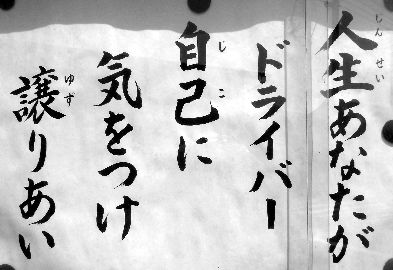 人生あなたが
ドライバー
自己に
気をつけ
譲りあい
しんせい
じこ
ゆず